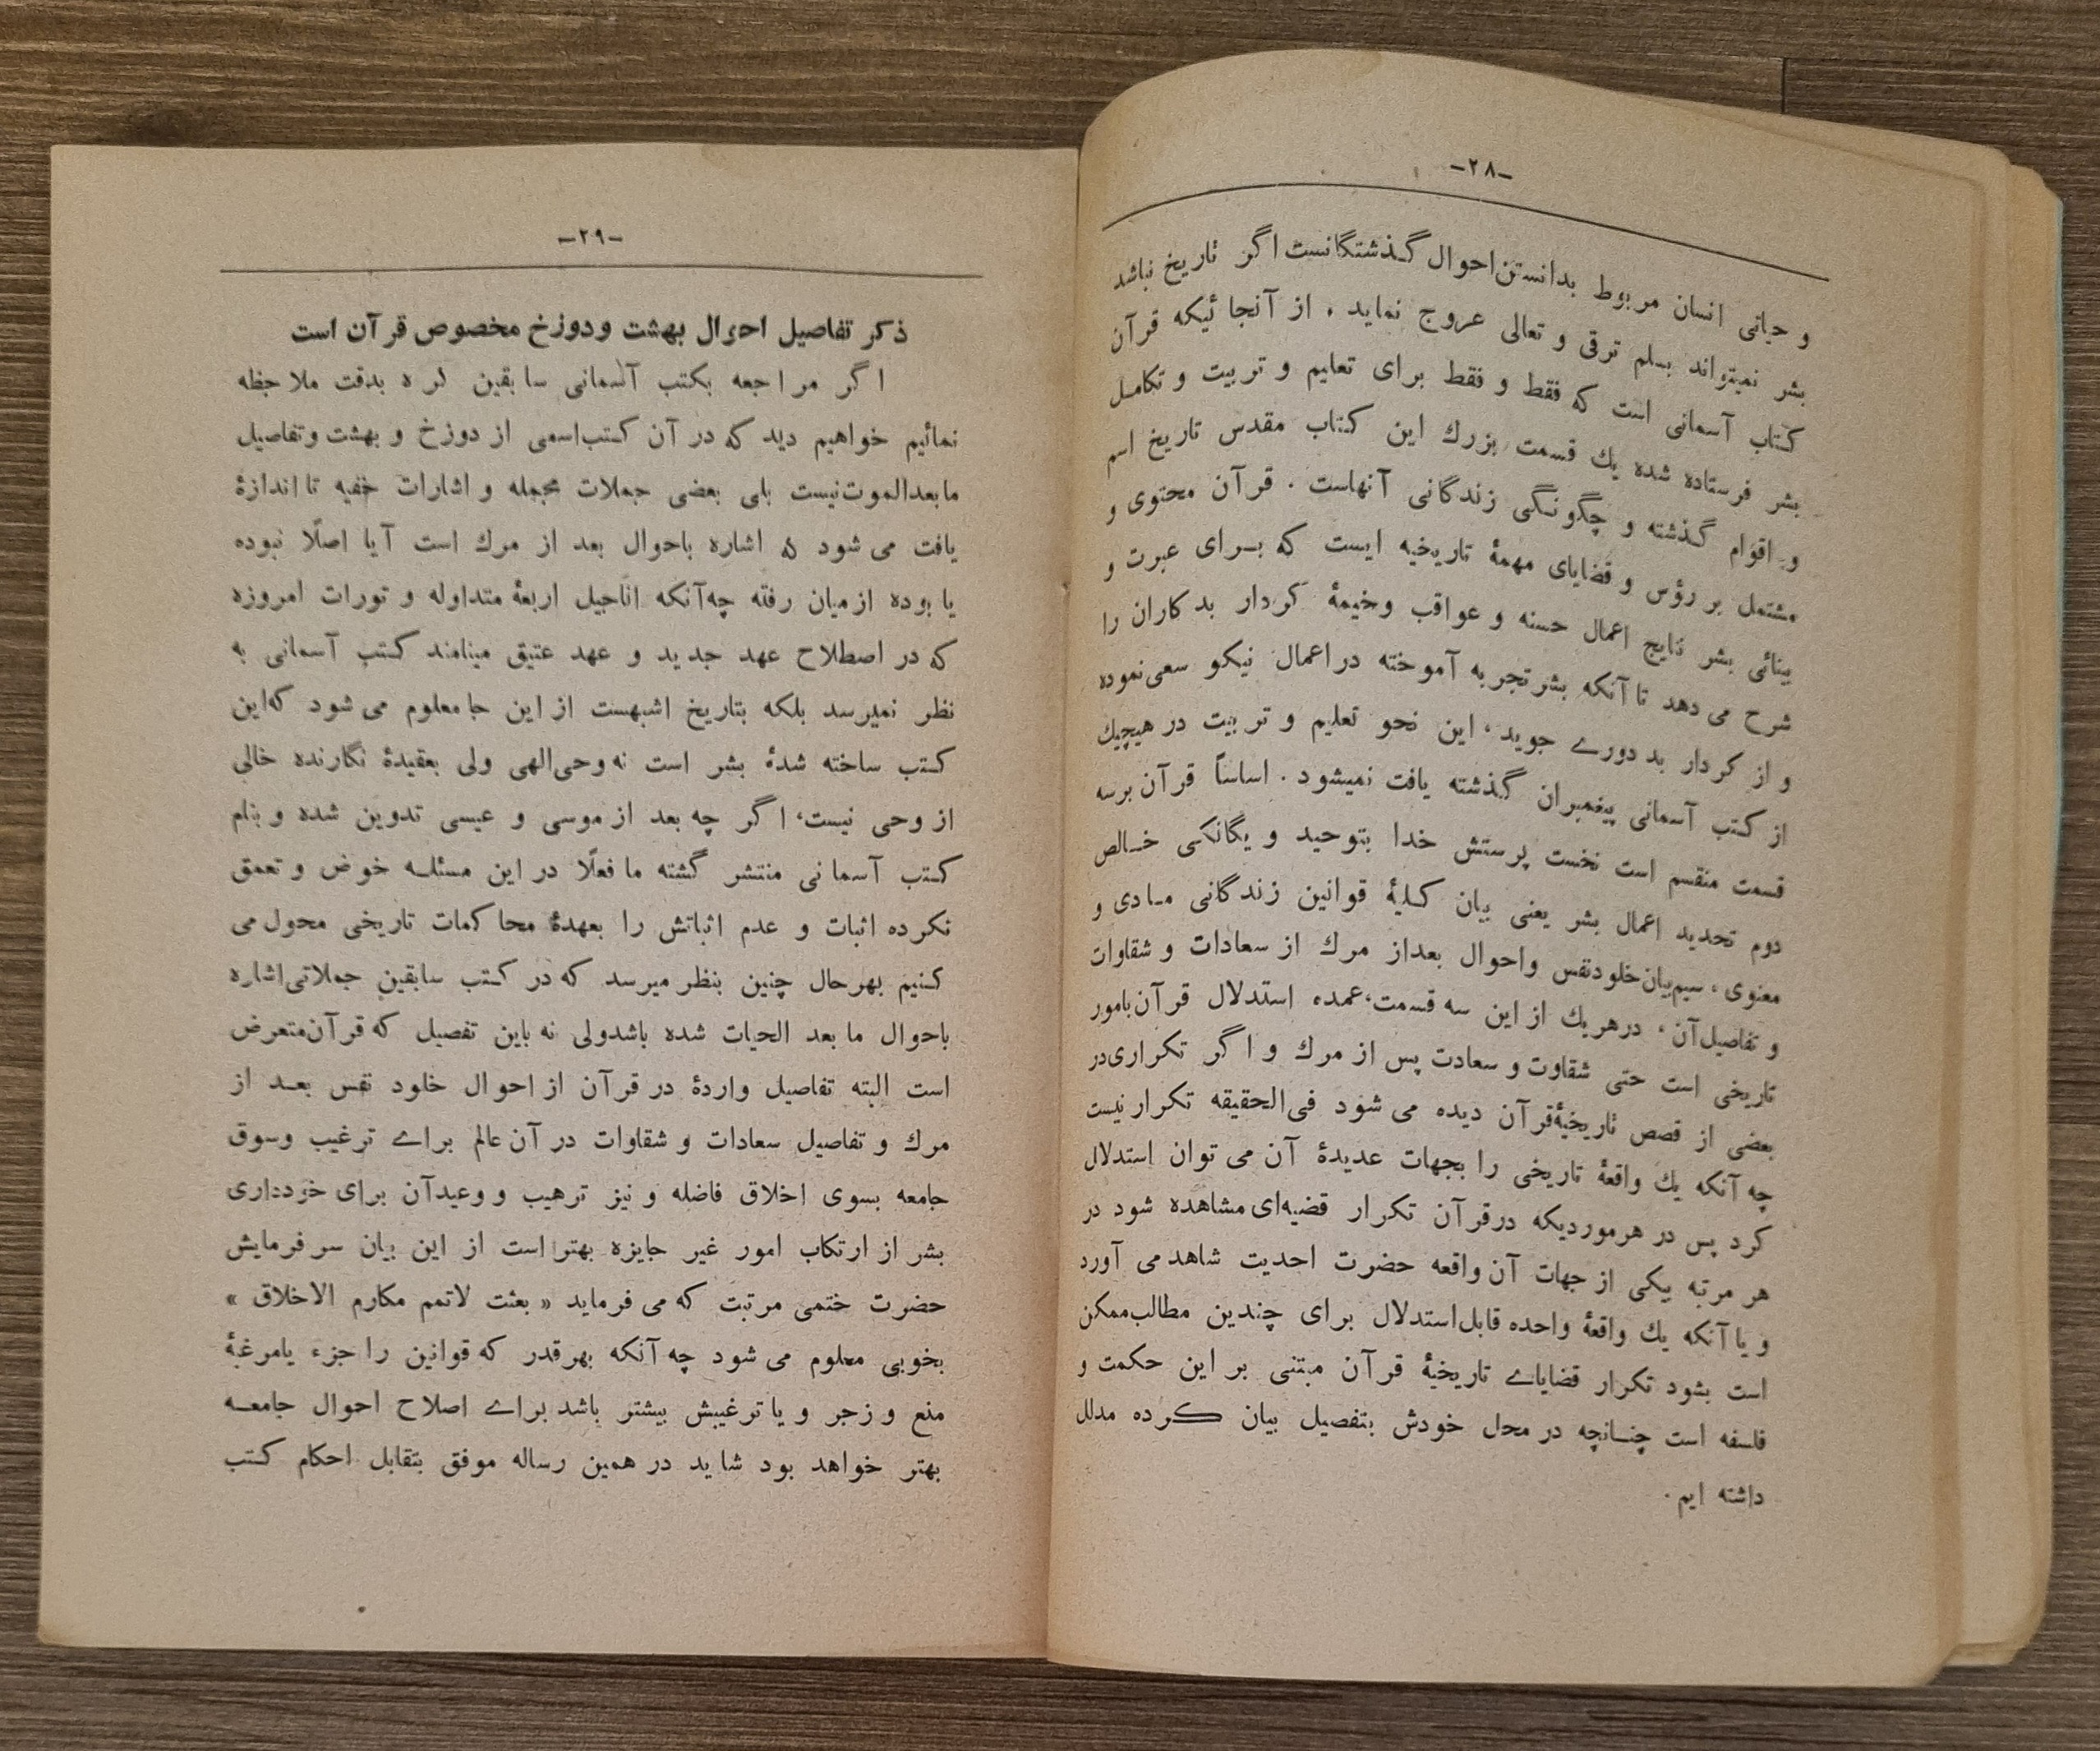 -۲۸-
و حیاتی انسان مربوط بدانستن احوال گذشتگانست اگر تاریخ نباشد
بشر نمیتواند بسلم ترقی و تعالی عروج نماید . از آنجا ئیکه قرآن
کتاب آسمانی است که فقط و فقط برای تعلیم و تربیت و تکامل
بشر فرستاده شده یك قسمت بزرك این کتاب مقدس تاریخ اسم
و اقوام گذشته و چگونگی زندگانی آنهاست . قرآن محتوی و
مشتمل بر رؤس و قضایای مهمهٔ تاریخیه ایست که برای عبرت و
بینائی بشر نتایج اعمال حسنه و عواقب وخیمهٔ کردار بدکاران را
شرح می دهد تا آنکه بشر تجربه آموخته در اعمال نیکو سعی نموده
و از کردار بد دورے جوید، این نحو تعلیم و تربیت در هیچیك
از کتب آسمانی پیغمبران گذشته یافت نمیشود . اساساً قرآن برسه
قسمت منقسم است نخست پرستش خدا بتوحید و یگانکی خالص
دوم تحدید اعمال بشر یعنی بیان کلیهٔ قوانین زندگانی مادی و
معنوی، سیم بیان خلود نفس و احوال بعد از مرك از سعادات و شقاوات
و تفاصیل آن، در هر یك از این سه قسمت، عمده استدلال قرآن بامور
تاریخی است حتی شقاوت و سعادت پس از مرك و اگر تکراری در
بعضی از قصص تاریخیهٔ قرآن دیده می شود فی الحقیقه تکرار نیست
چه آنکه یك واقعهٔ تاریخی را بجهات عدیدهٔ آن می توان استدلال
کرد پس در هر موردیکه در قرآن تکرار قضیه‌ای مشاهده شود در
هر مرتبه یکی از جهات آن واقعه حضرت احدیت شاهد می آورد
و یا آنکه یك واقعهٔ واحده قابل استدلال برای چندین مطالب ممکن
است بشود تکرار قضایاے تاریخیهٔ قرآن مبتنی بر این حکمت و
فلسفه است چنانچه در محل خودش بتفصیل بیان کرده مدلل
داشته ایم .
-۲۹-
ذکر تفاصیل احوال بهشت و دوزخ مخصوص قرآن است
اگر مراجعه بکتب آسمانی سابقین کرده بدقت ملاحظه
نمائیم خواهیم دید که در آن کتب اسمی از دوزخ و بهشت و تفاصیل
ما بعد الموت نیست بلی بعضی جملات مجمله و اشارات خفیه تا اندازهٔ
یافت می شود که اشاره باحوال بعد از مرك است آیا اصلًا نبوده
یا بوده از میان رفته چه آنکه اناجیل اربعهٔ متداوله و تورات امروزه
که در اصطلاح عهد جدید و عهد عتیق مینامند کتب آسمانی به
نظر نمیرسد بلکه بتاریخ اشبهست از این جا معلوم می شود که این
کتب ساخته شدهٔ بشر است نه وحی الهی ولی بعقیدهٔ نگارنده خالی
از وحی نیست، اگر چه بعد از موسی و عیسی تدوین شده و بنام
کتب آسمانی منتشر گشته ما فعلًا در این مسئله خوض و تعمق
نکرده اثبات و عدم اثباتش را بعهدهٔ محاکمات تاریخی محول می
کنیم بهر حال چنین بنظر میرسد که در کتب سابقین جملاتی اشاره
باحوال ما بعد الحیات شده باشد ولی نه باین تفصیل که قرآن متعرض
است البته تفاصیل واردهٔ در قرآن از احوال خلود نفس بعد از
مرك و تفاصیل سعادات و شقاوات در آن عالم براے ترغیب و سوق
جامعه بسوی اخلاق فاضله و نیز ترهیب و وعید آن برای خودداری
بشر از ارتکاب امور غیر جایزه بهتر است از این بیان سر فرمایش
حضرت ختمی مرتبت که می فرماید « بعثت لاتمم مکارم الاخلاق »
بخوبی معلوم می شود چه آنکه بهر قدر که قوانین را جزء یا مرغبهٔ
منع و زجر و یا ترغیبش بیشتر باشد براے اصلاح احوال جامعه
بهتر خواهد بود شاید در همین رساله موفق بتقابل احکام کتب